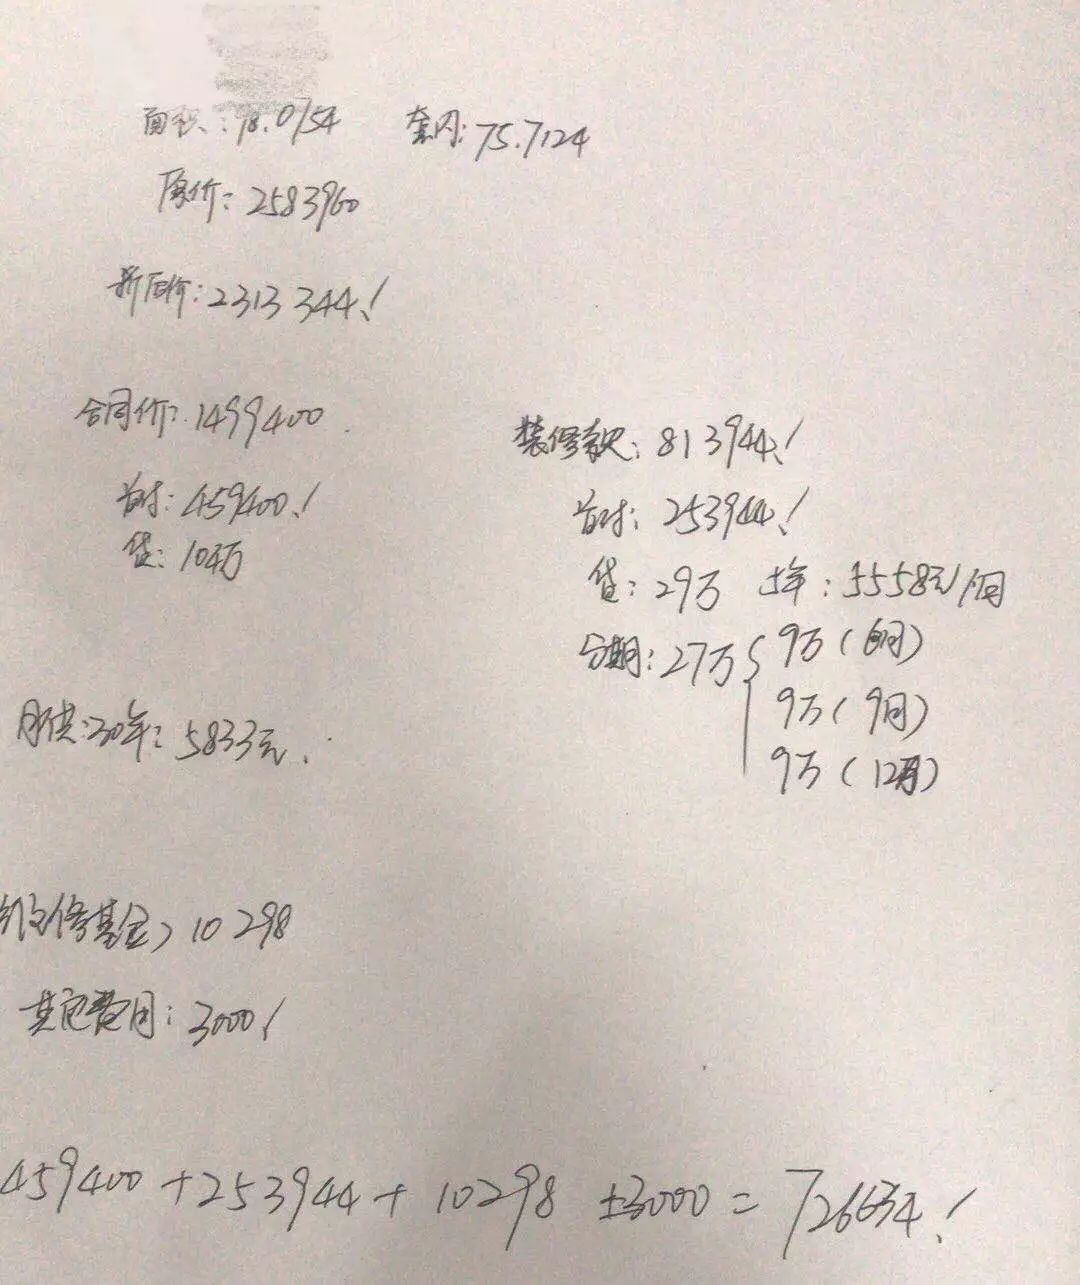 面积:98.0754 套内:75.7124
原价:2583960
折后价:2313344!
合同价:1499400
首付:459400!
贷:104万
月供:30年:5833元.
装修款:813944!
首付:253944!
贷:29万 5年:5558元/月
分期:27万{9万(6月)
9万(9月)
9万(12月)
维修基金,10298
其它费用:3000!
459400+253944+10298+3000=726634!